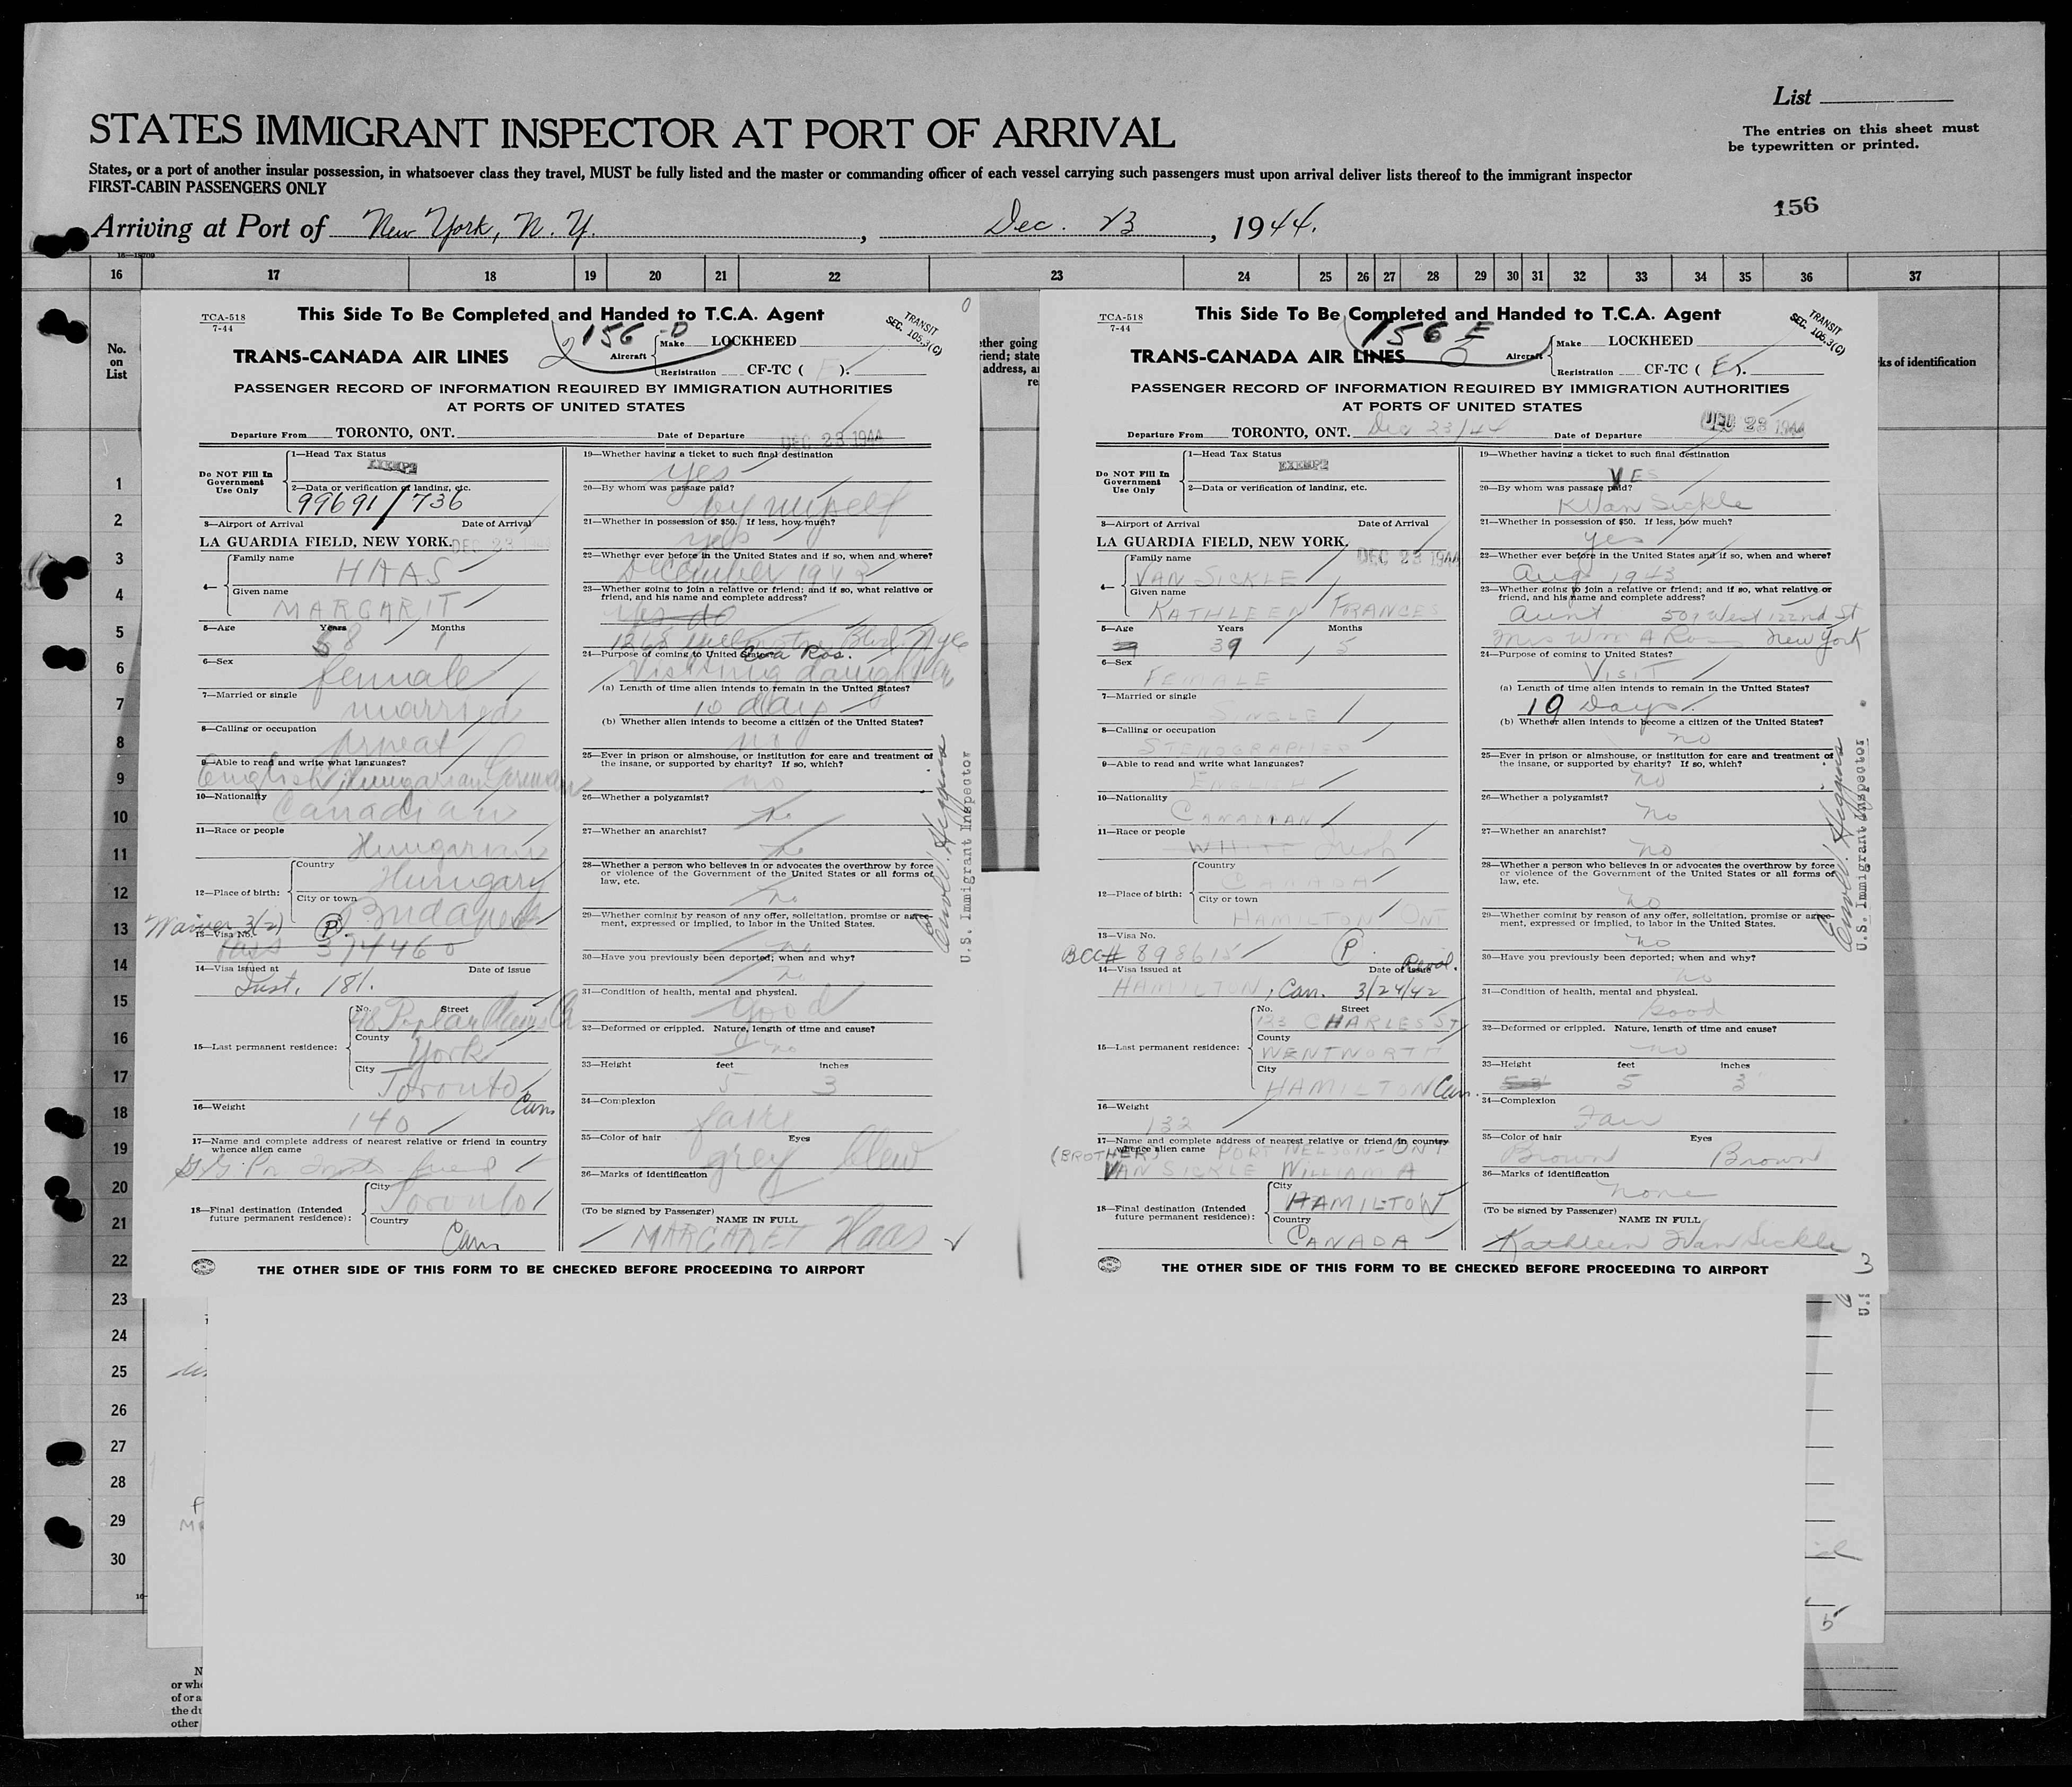 List
STATES IMMIGRANT INSPECTOR AT PORT OF ARRIVAL
The entries on this sheet must
be typewritten or printed.
States, or a port of another insular possession, in whatsoever class they travel, MUST be fully listed and the master or commanding officer of each vessel carrying such passengers must upon arrival deliver lists thereof to the immigrant inspector
FIRST-CABIN PASSENGERS ONLY
156
Arriving at Port of New York, N. Y. , Dec. 23 , 1944.
16 17 18 19 20 21 22 23 24 25 26 27 28 29 30 31 32 33 34 35 36 37
No.
on
List
1
2
3
4
5
6
7
8
9
10
11
12
13
14
15
16
17
18
19
20
21
22
23
24
25
26
27
28
29
30
TCA-518
7-44
This Side To Be Completed and Handed to T.C.A. Agent
TRANSIT
SEC. 105.3(C)
156-D
TRANS-CANADA AIR LINES
Aircraft
Make LOCKHEED
Registration CF-TC ( ).
PASSENGER RECORD OF INFORMATION REQUIRED BY IMMIGRATION AUTHORITIES
AT PORTS OF UNITED STATES
Departure From TORONTO, ONT. Date of Departure DEC 23 1944
Do NOT Fill In
Government
Use Only
1—Head Tax Status
EXEMPT
2—Data or verification of landing, etc.
99691/736
3—Airport of Arrival Date of Arrival
LA GUARDIA FIELD, NEW YORK. DEC 23 1944
4— Family name
HAAS
Given name
MARGARIT
5—Age Years Months
58 1
6—Sex
female
7—Married or single
married
8—Calling or occupation
9—Able to read and write what languages?
English Hungarian German
10—Nationality
Canadian
11—Race or people
Hungarian
12—Place of birth:
Country
Hungary
City or town
Budapest
Waiver 3(2) P.
13—Visa No.
Pass 374460
14—Visa issued at Date of issue
Inst. 181.
15—Last permanent residence:
No. Street
98 Poplar Plains
County
York
City
Toronto
Can
16—Weight
140
17—Name and complete address of nearest relative or friend in country
whence alien came
18—Final destination (Intended
future permanent residence):
City
Toronto
Country
Can
19—Whether having a ticket to such final destination
yes
20—By whom was passage paid?
by myself
21—Whether in possession of $50. If less, how much?
yes
22—Whether ever before in the United States and if so, when and where?
December 1943
23—Whether going to join a relative or friend; and if so, what relative or
friend, and his name and complete address?
24—Purpose of coming to United States?
Visiting daughter
(a) Length of time alien intends to remain in the United States?
10 days
(b) Whether alien intends to become a citizen of the United States?
no
25—Ever in prison or almshouse, or institution for care and treatment of
the insane, or supported by charity? If so, which?
no
26—Whether a polygamist?
no
27—Whether an anarchist?
no
28—Whether a person who believes in or advocates the overthrow by force
or violence of the Government of the United States or all forms of
law, etc.
no
29—Whether coming by reason of any offer, solicitation, promise or agree-
ment, expressed or implied, to labor in the United States.
no
30—Have you previously been deported; when and why?
no
31—Condition of health, mental and physical.
good
32—Deformed or crippled. Nature, length of time and cause?
no
33—Height feet inches
5 3
34—Complexion
faire
35—Color of hair Eyes
grey blew
36—Marks of identification
(To be signed by Passenger)
NAME IN FULL
MARGARET Haas
U.S. Immigrant Inspector
THE OTHER SIDE OF THIS FORM TO BE CHECKED BEFORE PROCEEDING TO AIRPORT
ks of identification
TCA-518
7-44
This Side To Be Completed and Handed to T.C.A. Agent
TRANSIT
SEC. 105.3(C)
156 E
TRANS-CANADA AIR LINES
Aircraft
Make LOCKHEED
Registration CF-TC ( E ).
PASSENGER RECORD OF INFORMATION REQUIRED BY IMMIGRATION AUTHORITIES
AT PORTS OF UNITED STATES
Departure From TORONTO, ONT. Dec 23/44 Date of Departure DEC 23 1944
Do NOT Fill In
Government
Use Only
1—Head Tax Status
EXEMPT
2—Data or verification of landing, etc.
3—Airport of Arrival Date of Arrival
LA GUARDIA FIELD, NEW YORK. DEC 23 1944
4— Family name
VAN SICKLE
Given name
KATHLEEN FRANCES
5—Age Years Months
39 5
6—Sex
FEMALE
7—Married or single
SINGLE
8—Calling or occupation
STENOGRAPHER
9—Able to read and write what languages?
ENGLISH
10—Nationality
CANADIAN
11—Race or people
WHITE Irish
12—Place of birth:
Country
CANADA
City or town
HAMILTON ONT
13—Visa No.
BCC# 898615 P
14—Visa issued at Date of issue
HAMILTON, Can. 3/24/42
15—Last permanent residence:
No. Street
133 CHARLES ST
County
WENTWORTH
City
HAMILTON Can.
16—Weight
132
17—Name and complete address of nearest relative or friend in country
whence alien came
(BROTHER) PORT NELSON-ONT
VAN SICKLE WILLIAM A
18—Final destination (Intended
future permanent residence):
City
HAMILTON
Country
CANADA
19—Whether having a ticket to such final destination
YES
20—By whom was passage paid?
K Van Sickle
21—Whether in possession of $50. If less, how much?
yes
22—Whether ever before in the United States and if so, when and where?
Aug 1943
23—Whether going to join a relative or friend; and if so, what relative or
friend, and his name and complete address?
Aunt 509 West 122nd St
Mrs Wm A New York
24—Purpose of coming to United States?
VISIT
(a) Length of time alien intends to remain in the United States?
10 Days
(b) Whether alien intends to become a citizen of the United States?
no
25—Ever in prison or almshouse, or institution for care and treatment of
the insane, or supported by charity? If so, which?
no
26—Whether a polygamist?
no
27—Whether an anarchist?
no
28—Whether a person who believes in or advocates the overthrow by force
or violence of the Government of the United States or all forms of
law, etc.
no
29—Whether coming by reason of any offer, solicitation, promise or agree-
ment, expressed or implied, to labor in the United States.
no
30—Have you previously been deported; when and why?
no
31—Condition of health, mental and physical.
Good
32—Deformed or crippled. Nature, length of time and cause?
no
33—Height feet inches
5 3
34—Complexion
Fair
35—Color of hair Eyes
Brown Brown
36—Marks of identification
none
(To be signed by Passenger)
NAME IN FULL
Kathleen F Van Sickle
3
U.S. Immigrant Inspector
THE OTHER SIDE OF THIS FORM TO BE CHECKED BEFORE PROCEEDING TO AIRPORT